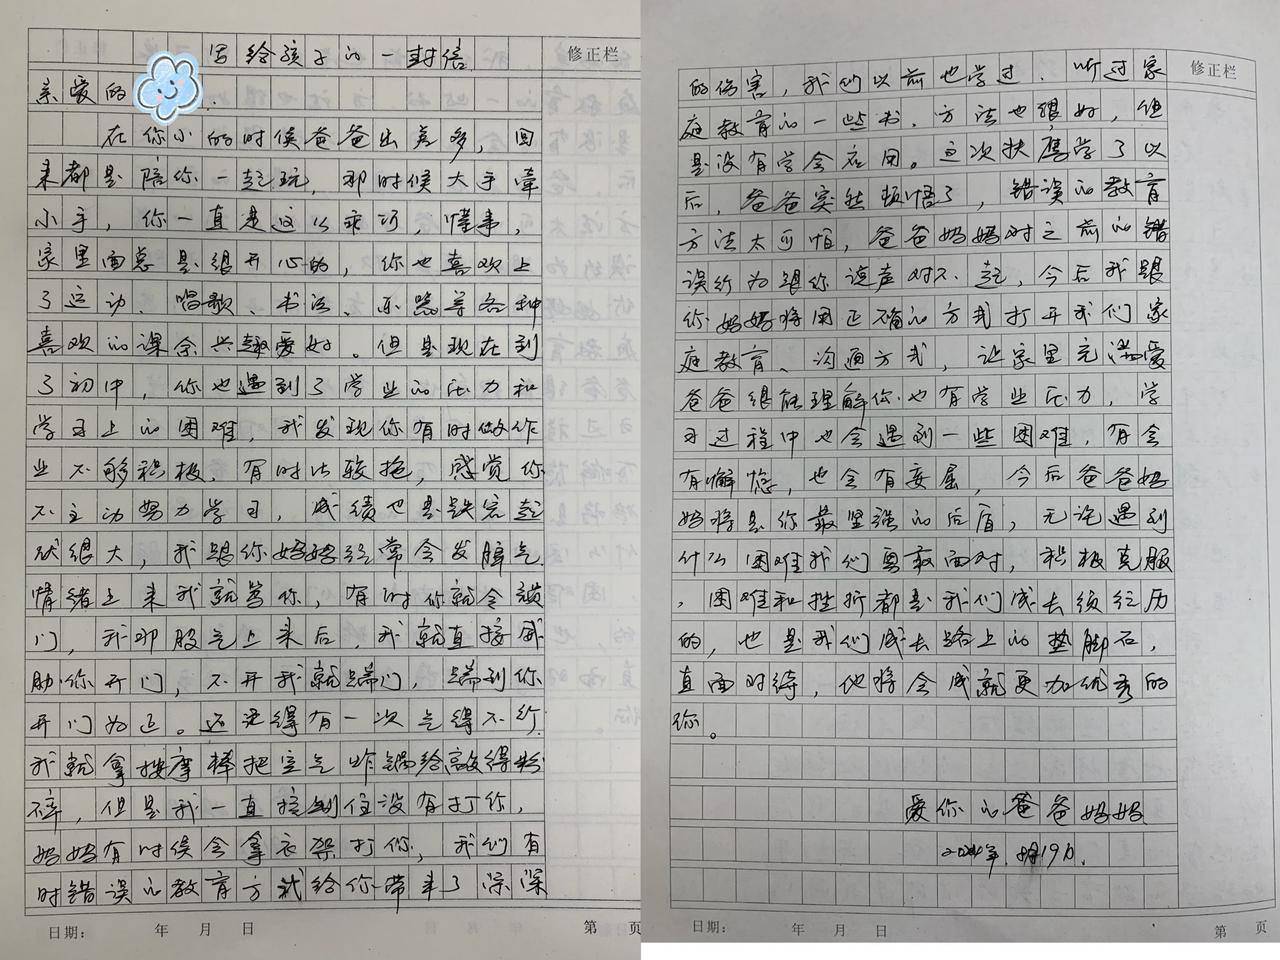 写给孩子的一封信.
修正栏
亲爱的
在你小的时候爸爸出差多，回
来都是陪你一起玩，那时候大手牵
小手，你一直是这么乖巧，懂事，
家里面总是很开心的，你也喜欢上
了运动、唱歌、书法、乐器等各种
喜欢的课余兴趣爱好。但是现在到
了初中，你也遇到了学业的压力和
学习上的困难，我发现你有时做作
业不够积极，有时比较拖，感觉你
不主动努力学习，成绩也是跌宕起
伏很大，我跟你妈妈经常会发脾气.
情绪上来我就骂你，有时你就会锁
门，我那股气上来后，我就直接威
胁你开门，不开我就踹门，踹到你
开门为止。还记得有一次气得不行.
我就拿按摩棒把空气炸锅给敲得粉
碎，但是我一直控制住没有打你，
妈妈有时候会拿衣架打你，我们有
时错误的教育方式给你带来了深深
日期： 年 月 日 第 页
修正栏
的伤害，我们以前也学过、听过家
庭教育的一些书，方法也很好，但
是没有学会应用。这次扶鹰学了以
后，爸爸突然顿悟了，错误的教育
方法太可怕，爸爸妈妈对之前的错
误行为跟你说声对不起，今后我跟
你妈妈将用正确的方式打开我们家
庭教育、沟通方式，让家里充满爱
爸爸很能理解你也有学业压力，学
习过程中也会遇到一些困难，有会
有懈怠，也会有委屈，今后爸爸妈
妈将是你最坚强的后盾，无论遇到
什么困难我们要敢面对，积极克服
，困难和挫折都是我们成长须经历
的，也是我们成长路上的垫脚石，
直面对待，他将会成就更加优秀的
你。
爱你的爸爸妈妈.
2024年.8月19日.
日期： 年 月 日 第 页